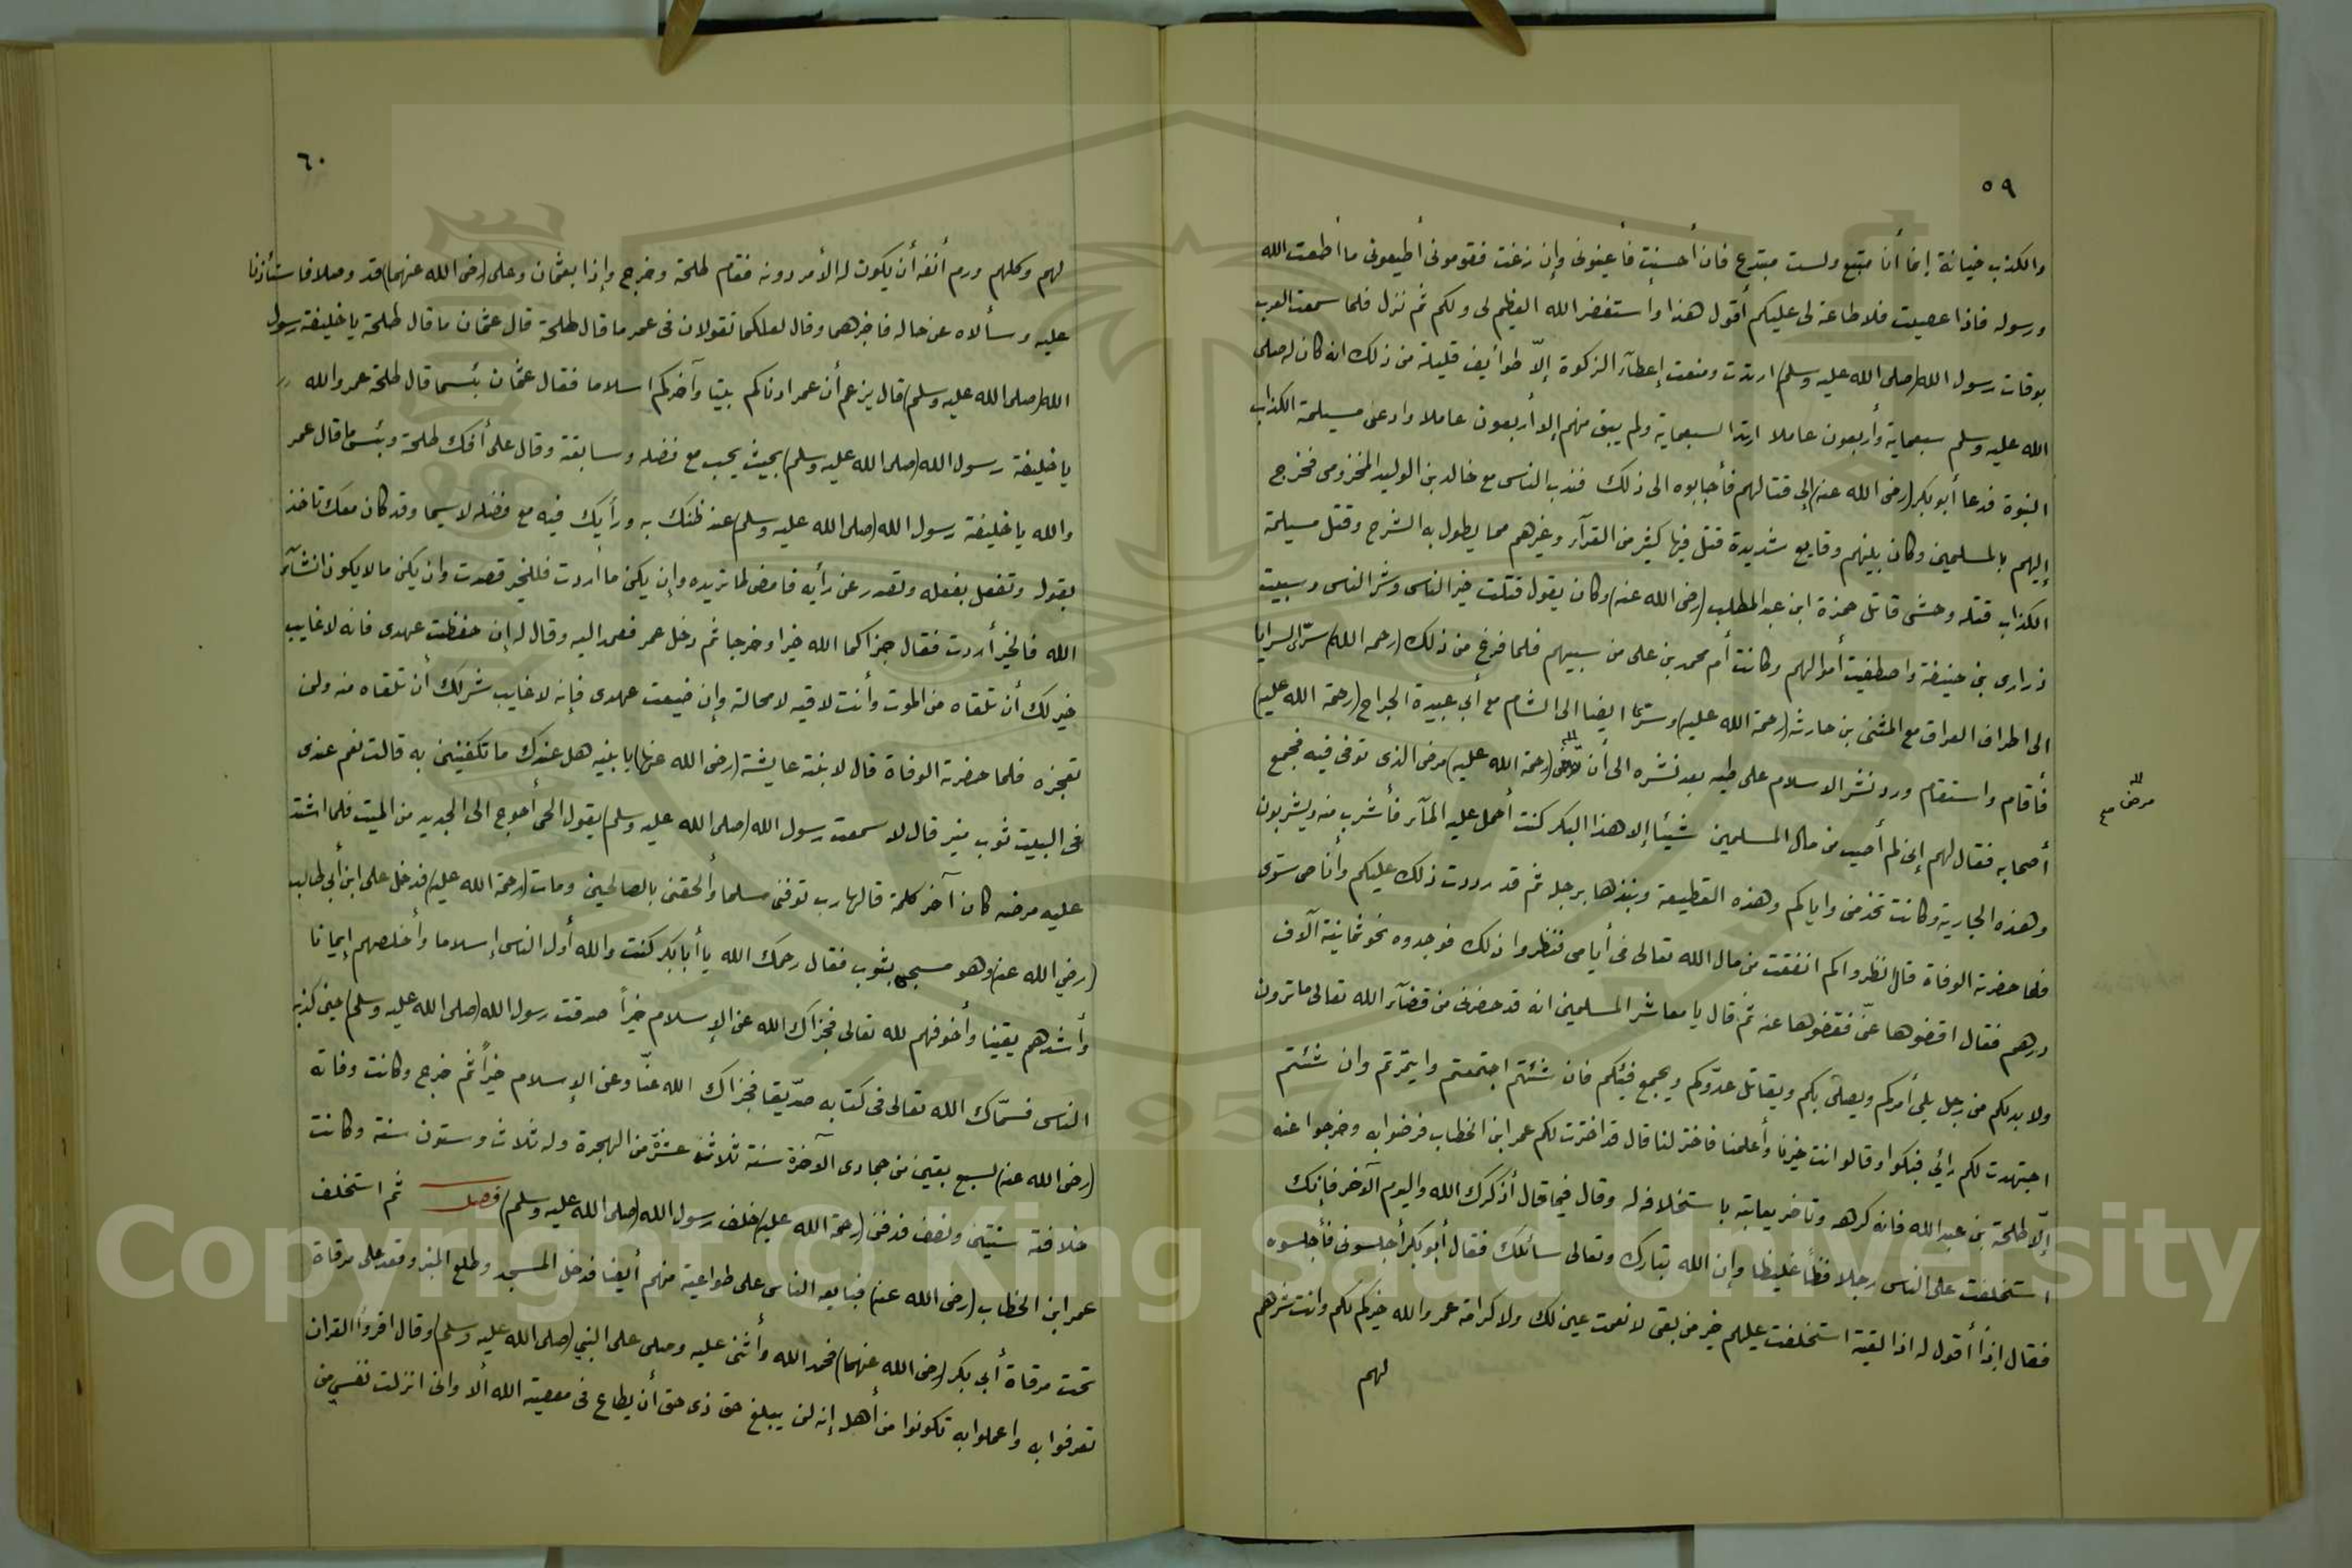 ٥٩
والكذب خيانة إنما أنا متبع ولست مبتدع فان أحسنت فأعينونى وإن زغت فقومونى أطيعونى ما أطعت الله
ورسوله فاذا عصيت فلا طاعة لى عليكم أقول هذا واستغفر الله العظيم لى ولكم ثم نزل فلما سمعت العرب
بوفات رسول الله (صلى الله عليه وسلم) ارتدت ومنعت إعطآء الزكوة إلّا طوايف قليلة من ذلك انه كان له صلى
الله عليه وسلم سبعماية وأربعون عاملا ارتدا لسبعماية ولم يبق منهم إلا أربعون عاملا وادعى مسيلمة الكذاب
النبوة فدعا أبو بكر (رضى الله عنه) إلى قتالهم فأجابوه الى ذلك فندب الناس مع خالد بن الوليد المخزومى فخرج
إليهم بالمسلمين وكان بينهم وقايع شديدة قتل فيها كثير من القرآء وغيرهم مما يطول به الشرح وقتل مسيلمة
الكذاب قتله وحشى قاتل حمزة ابن عبد المطلب (رضى الله عنه) وكان يقول قتلت خير الناس وشر الناس وسبيت
ذرارى بنى حنيفة واصطفيت أموالهم وكانت أم محمد بن على من سبيهم فلما فرغ من ذلك (رحمه الله) سرّى السرايا
الى اطراف العراق مع المثنى بن حارثه (رحمة الله عليه) وسرّيا ايضا الى الشام مع أبى عبيدة الجراح (رحمة الله عليه)
فأقام واستقام ورد نشر الاسلام على طيه بعد نشره الى أن (رحمة الله عليه) مرض الذى توفى فيه فجمع
مرض صح
أصحابه فقال لهم إنى لم أصيب من مال المسلمين شيئا إلا هذا البكر كنت أحمل عليه المآء فأشرب منه ويشربون
وهذه الجارية وكانت تخدمنى واياكم وهذه القطيعة ونبذها برجله ثم قد رددت ذلك عليكم وأنا مستوى
فلما حضرته الوفاة قال انظروا كم انفقت من مال الله تعالى فى أيامى فنظروا ذلك فوجدوه نحو ثمانية آلاف
درهم فقال اقضوها عنّى فقضوها عنه ثم قال يا معاشر المسلمين انه قد حضرنى من قضآء الله تعالى ماترون
ولا بد لكم من رجل يلى أمركم ويصلى بكم ويقاتل عدّوكم ويجمع فيئكم فان شئتم اجتمعتم وايتمرتم وان شئتم
اجتهدت لكم رائي فبكوا وقالو انت خيرنا وأعلمنا فاختر لنا قال قد اخترت لكم عمر ابن الخطاب فرضوا به وخرجوا عنه
إلّا طلحة بن عبد الله فانه كرهه وتأخر يعاتبه باستخلافه له وقال فيما قال أذكرك الله واليوم الآخر فإنك
استخلفت على الناس رجلا فظًا غليظا وإن الله تبارك وتعالى سائلك فقال أبو بكر أجلسونى فأجلسوه
فقال إذًا أقول له اذا لقيته استخلفت عليهم خير من بقى لا نعمت عين لك ولا كرامة عمر والله خيركم لكم وانت شرهم
لهم
٦٠
لهم وكلهم ورم أنفه أن يكون له الأمر دونه فقام طلحة وخرج وإذا بعثمان وعلى (رضى الله عنهما) قد وصلا فاستأذنا
عليه وسألاه عن حاله فاخبرهما وقال لعلكما تقولان فى عمر ما قال طلحة قال عثمان ما قال طلحة يا خليفة رسول
الله (صلى الله عليه وسلم) قال يزعم أن عمر ادناكم بيتا وآخركم اسلاما فقال عثمان بئسما قال طلحة عمر والله
يا خليفة رسول الله (صلى الله عليه وسلم) بحيث يحب مع فضله وسابقة وقال على أفك طلحة وبئس ما قال عمر
والله يا خليفة رسول الله (صلى الله عليه وسلم) عند ظنك به ورأيك فيه مع فضله لاسيما وقد كان معك تاخذ
بقوله وتفعل بفعله وتصدر عن رأيه فامض لما تريده وإن يكن ما أردت فللخير قصدت وان يكن مالا يكون انشآء
الله فالخير أردت فقال جزاكما الله خيرا وخرجا ثم دخل عمر فعهد اليه وقال له إن حفظت عهدى فانه لا غايب
خير لك أن تلقاه من الموت وأنت لاقيه لامحالة وإن ضيعت عهدى فإنه لا غايب شر لك أن تلقاه منه ولن
تعجزه فلما حضرته الوفاة قال لابنته عايشة (رضى الله عنها) يا بنيه هل عندك ما تكفنين به قالت نعم عندى
فى البيت ثوب منير قال لا سمعت رسول الله (صلى الله عليه وسلم) يقول الحى أحوج الى الجديد من الميت فلما اشتد
عليه مرضه كان آخر كلمة قالها رب توفنى مسلما وألحقنى بالصالحين ومات (رحمة الله عليه) فدخل على ابن أبى طالب
(رضي الله عنه) وهو مسجى بثوب فقال رحمك الله يا أبا بكر كنت والله أول الناس إسلاما وأخلصهم إيمانا
وأشدهم يقينا وأخوفهم لله تعالى فجزاك الله عن الإسلام خيراً صدقت رسول الله (صلى الله عليه وسلم) حين كذبه
الناس فسمّاك الله تعالى فى كتابه صدّيقا فجزاك الله عنّا وعن الإسلام خيراً ثم خرج وكانت وفاته
(رضى الله عنه) لسبع بقين من جمادى الآخرة سنة ثلاثة عشرة من الهجرة وله ثلاث وستون سنة وكانت
خلافته سنتين ونصف فدفن (رحمة الله عليه) خلف رسول الله (صلى الله عليه وسلم) فصل ثم استخلف
عمر ابن الخطاب (رضى الله عنه) فبايعه الناس على طواعية منهم أيضا فدخل المسجد وطلع المنبر وقعد على مرقاة
تحت مرقاة أبى بكر (رضى الله عنهما) فحمد الله وأثنى عليه وصلى على النبي (صلى الله عليه وسلم) وقال اقرؤا القران
تعرفوا به واعملوا به تكونوا من أهله إنه لن يبلغ حق ذى حق أن يطاع فى معصية الله ألا وانى انزلت نفسى من
Copyright © King Saud University